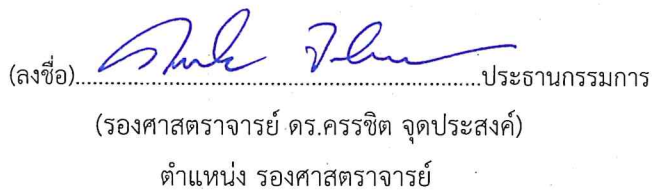 (ลงชื่อ)........................................................ประธานกรรมการ
(รองศาสตราจารย์ ดร.ครรชิต จุดประสงค์)
ตำแหน่ง รองศาสตราจารย์